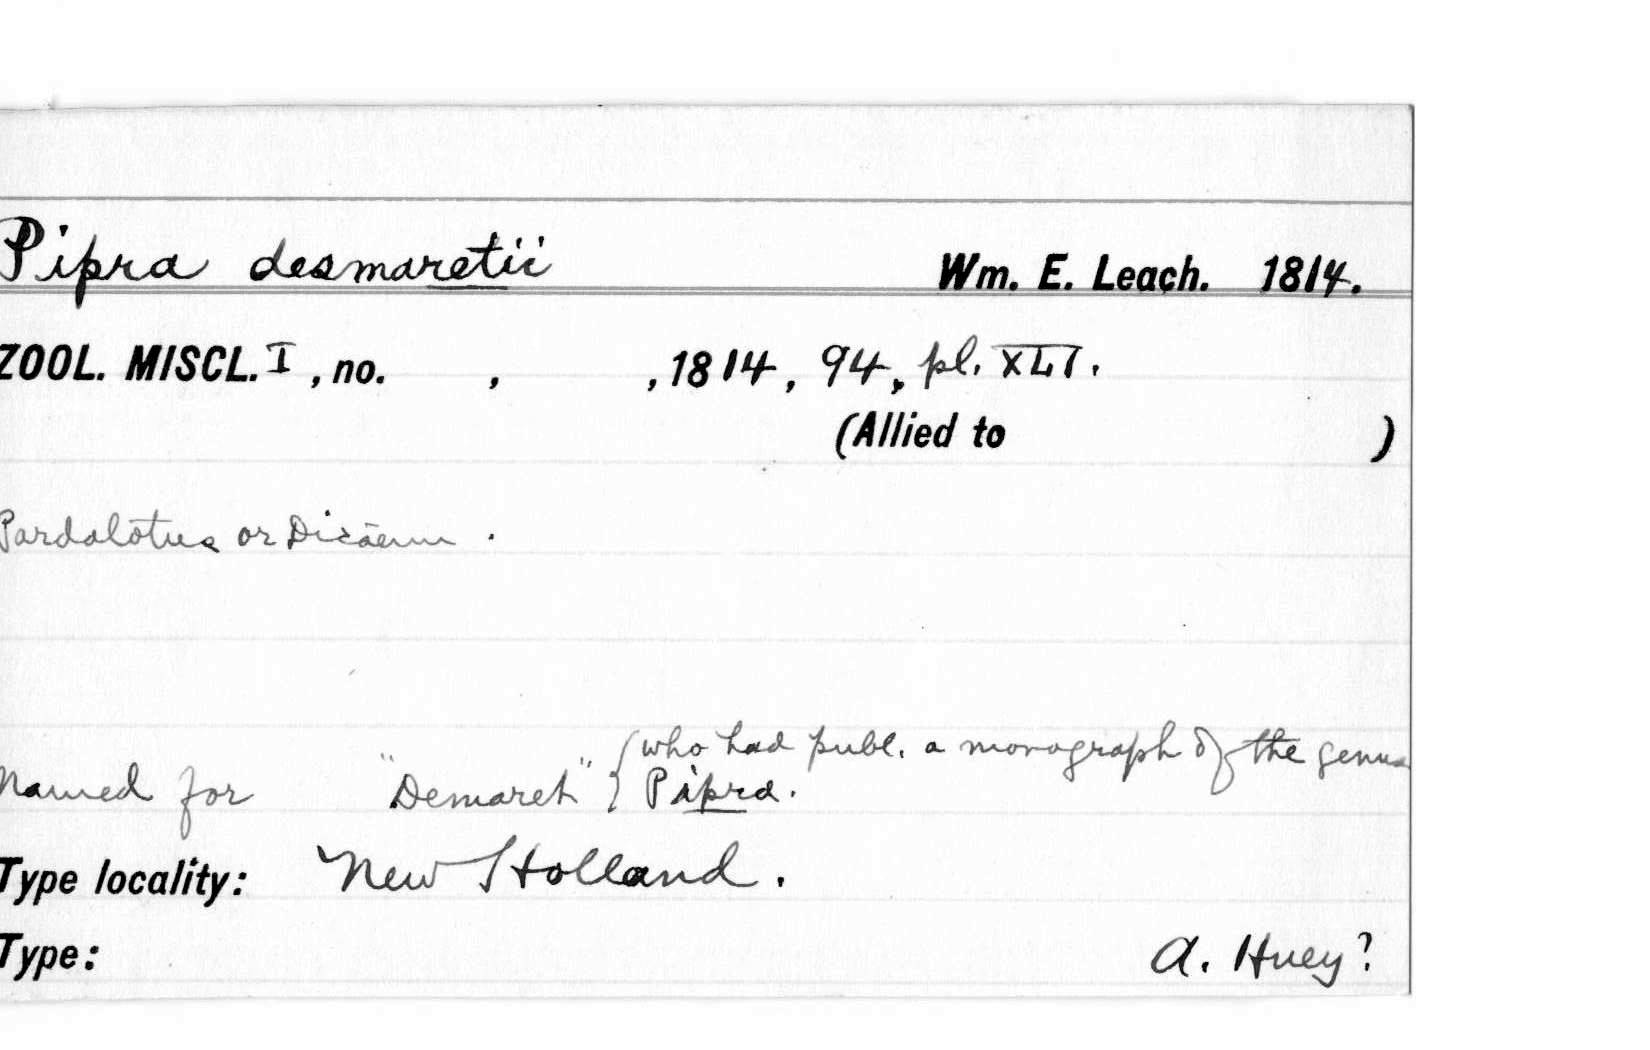 Pipra desmaretii Wm. E. Leach. 1814.
ZOOL. MISCL. I, no. , , 1814, 94, pl. XLI.
(Allied to )
Pardalotus or Dicaeum.
Named for "Demaret" { who had publ. a monograph of the genus
Pipra.
Type locality: New Holland.
Type: A. Huey?